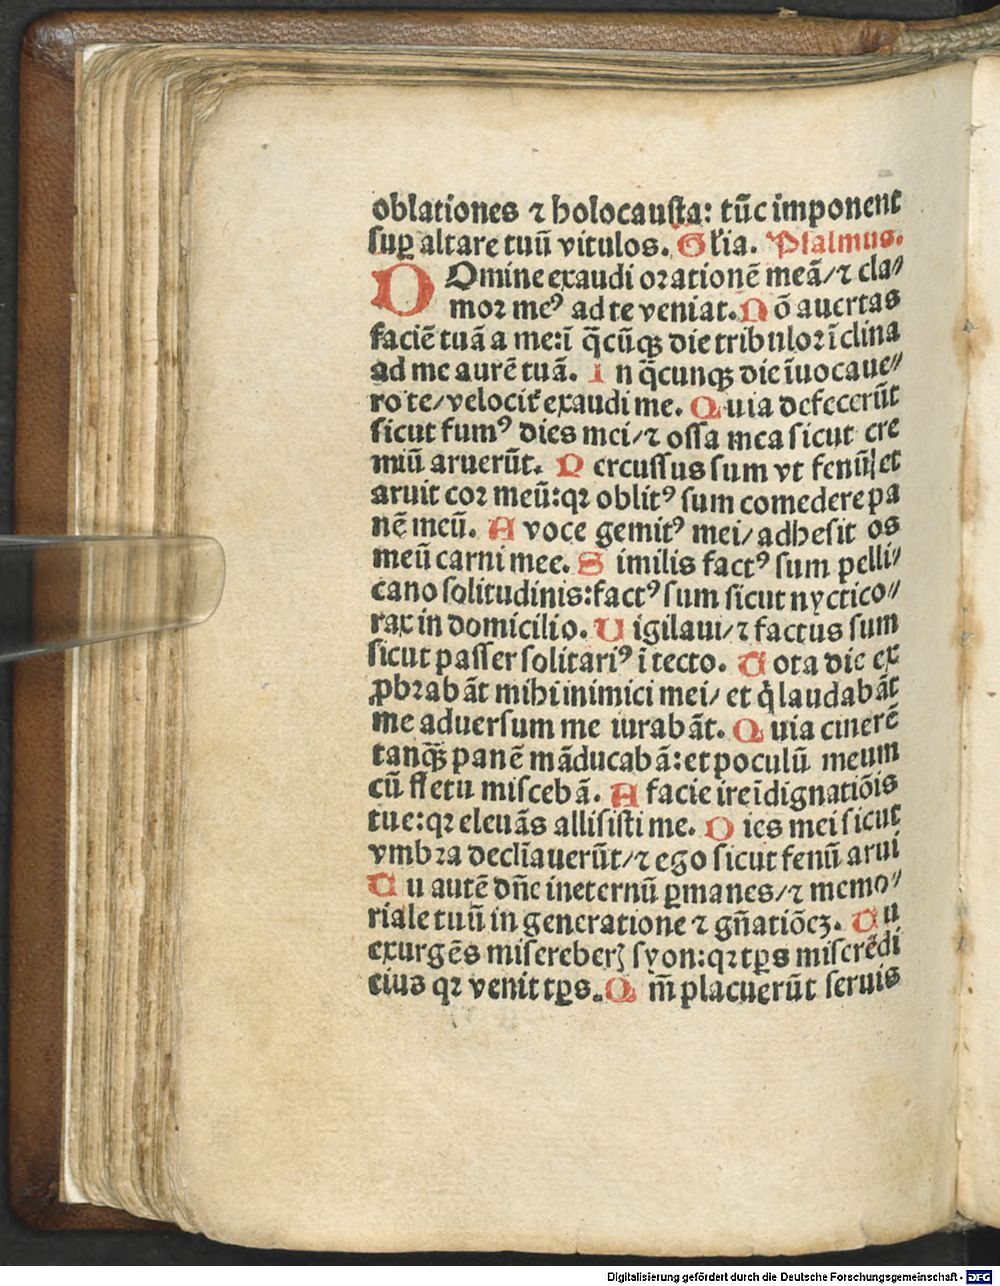 oblationes ⁊ holocausta: tūc imponent
suꝑ altare tuū vitulos. Gľia. Psalmus.
DOmine exaudi orationē meā/ ⁊ cla⸗
mor meꝰ ad te veniat. Nō auertas
faciē tuā a me: ī q̄cūqꝫ die tribulor īclina
ad me aurē tuā. In q̄cunqꝫ die īuocaue⸗
ro te/ velocit̕ exaudi me. Quia defecerūt
sicut fumꝰ dies mei/ ⁊ ossa mea sicut cre
miū aruerūt. Percussus sum vt fenū et
aruit cor meū: qꝛ oblitꝰ sum comedere pa
nē meū. A voce gemitꝰ mei/ adhesit os
meū carni mee. Similis factꝰ sum pelli⸗
cano solitudinis: factꝰ sum sicut nyctico⸗
rax in domicilio. Uigilaui/ ⁊ factus sum
sicut passer solitariꝰ ī tecto. Tota die ex
ꝓbrabāt mihi inimici mei/ et q̇ laudabāt
me aduersum me iurabāt. Quia cinerē
tanqꝫ̄ panē māducabā: et poculū meum
cū fletu miscebā. A facie ire īdignatiōis
tue: qꝛ eleuās allisisti me. Dies mei sicut
vmbra declīauerūt/ ⁊ ego sicut fenū arui
Tu autē dn̄e ineternū ꝑmanes/ ⁊ memo⸗
riale tuū in generatione ⁊ gn̄atiōeꝫ. Tu
exurgēs misereberꝭ syon: qꝛ tp̄s miserēdi
eius qꝛ venit tp̄s. Qm̄ placuerūt seruis
Digitalisierung gefördert durch die Deutsche Forschungsgemeinschaft - DFG